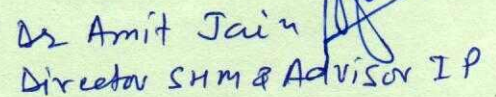 Dr Amit Jain
Director SHM & Advisor IP